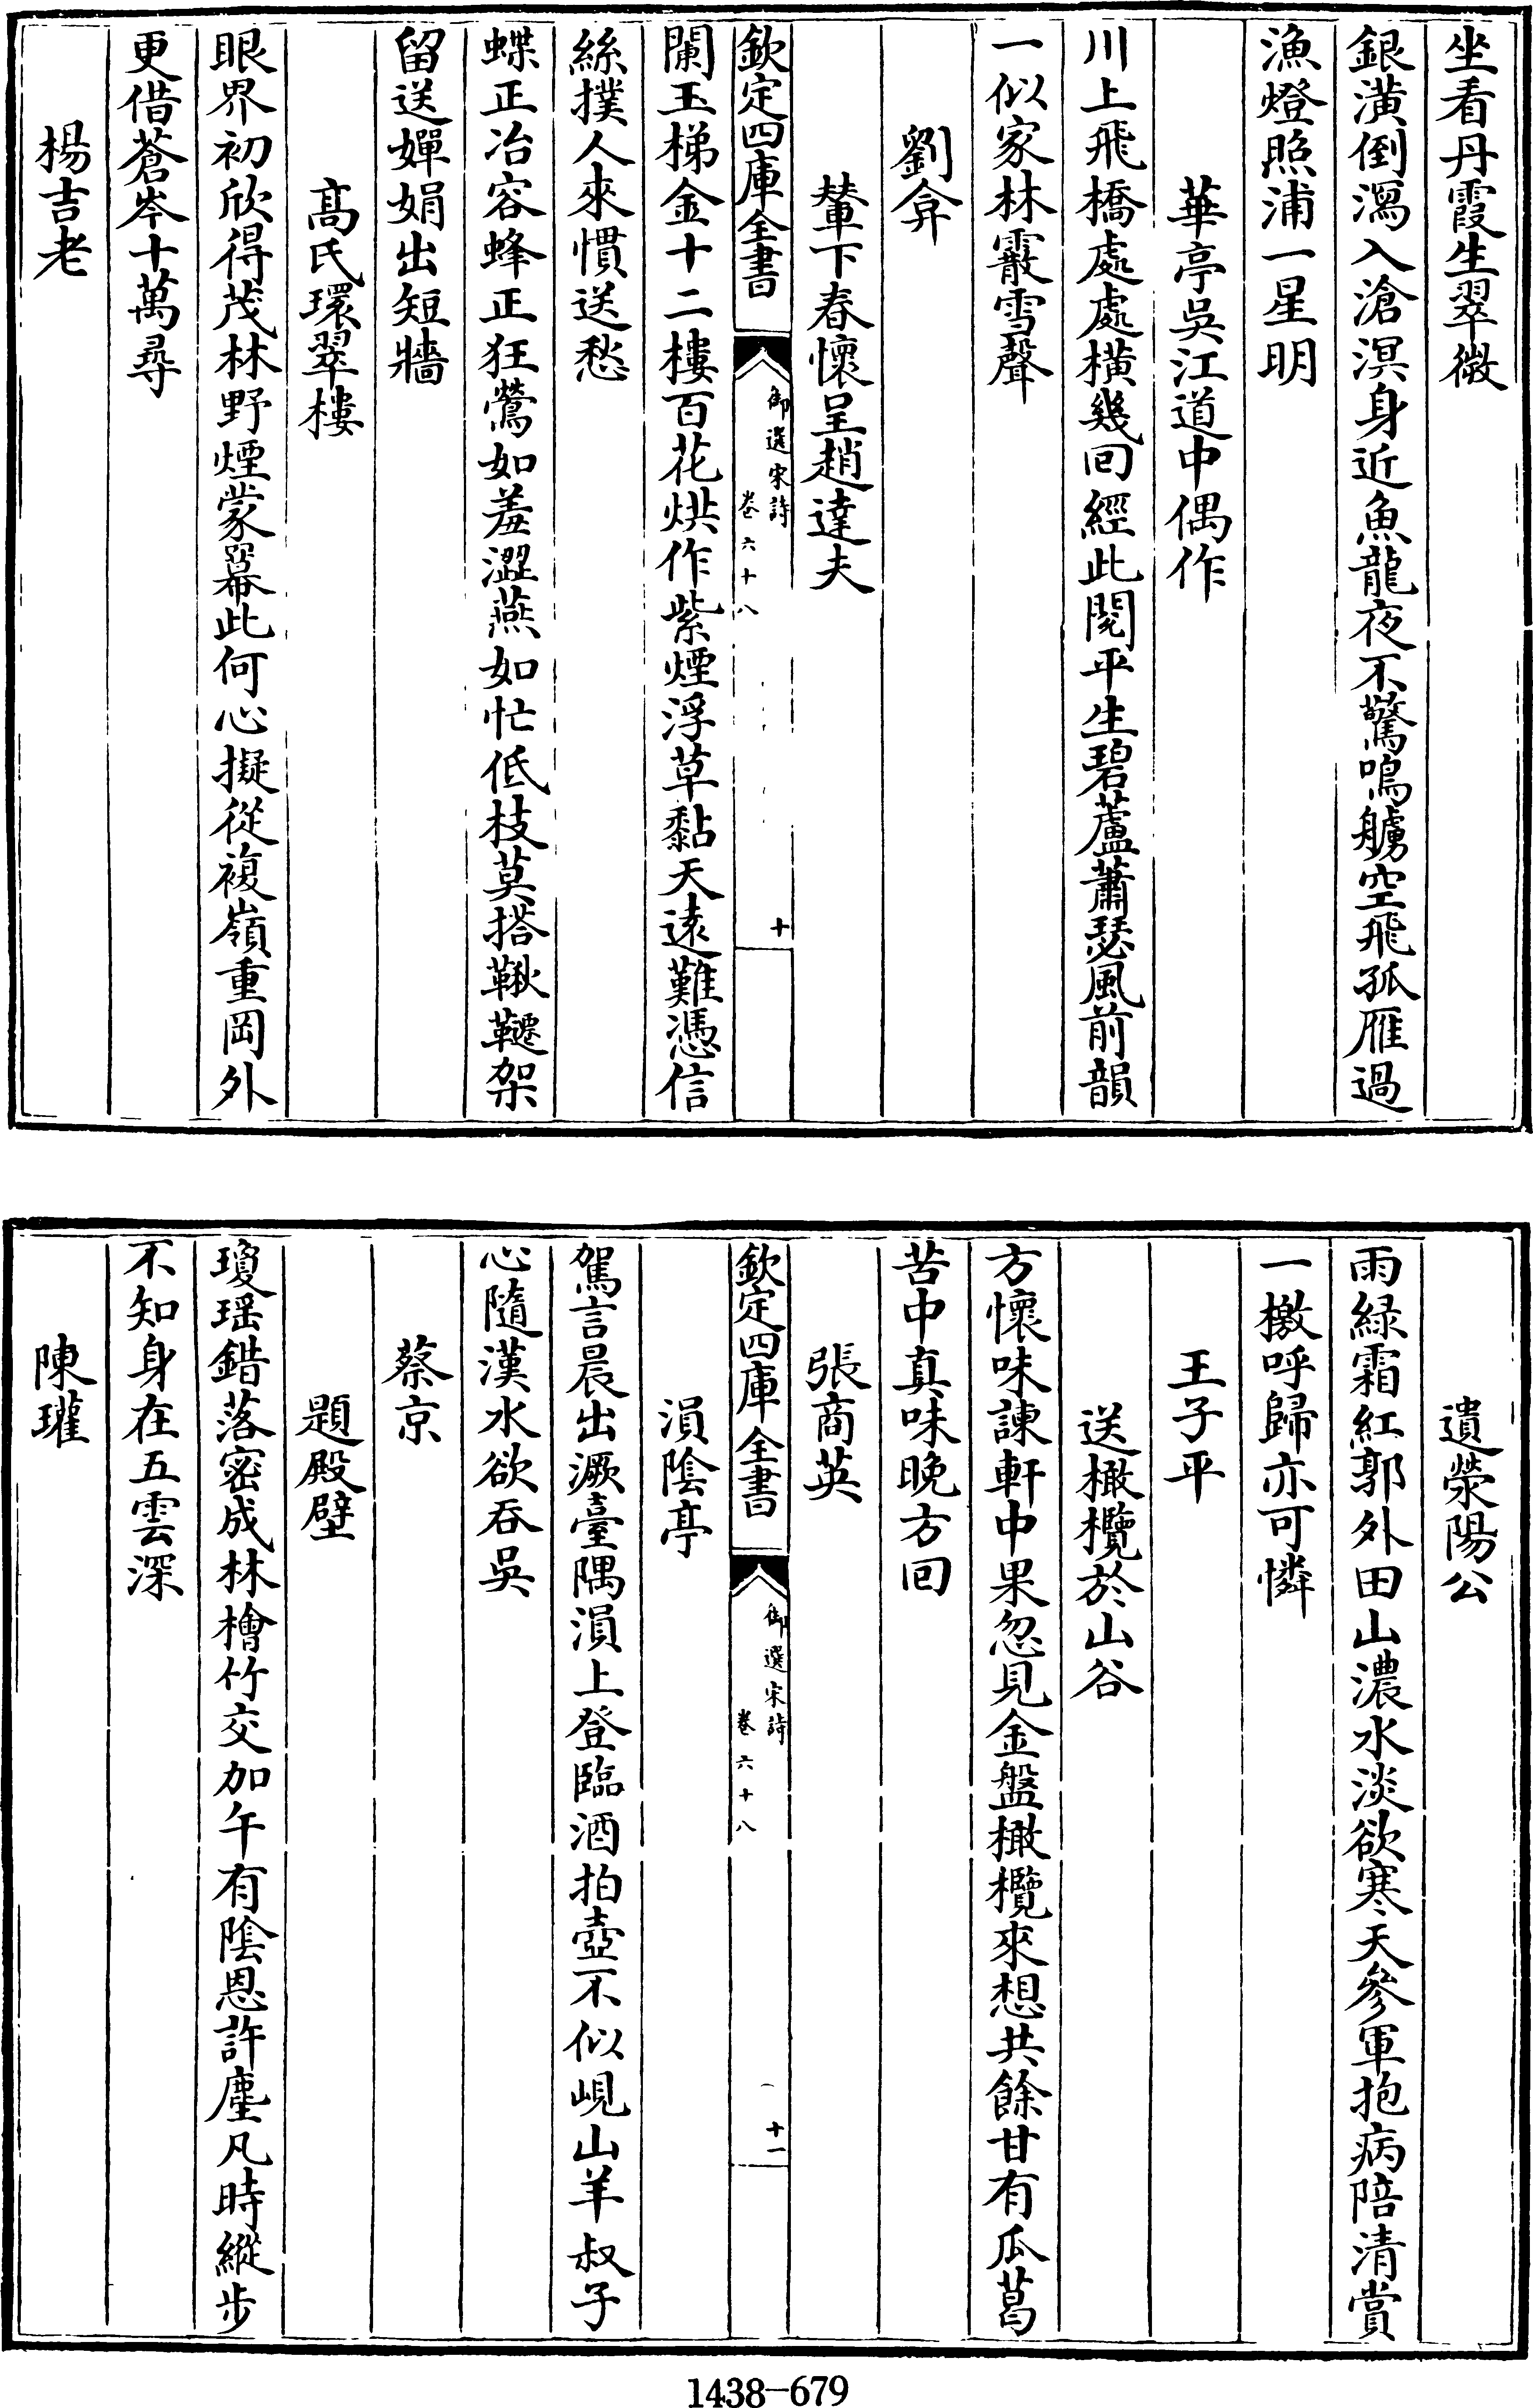 坐看丹霞生翠微
銀潢倒瀉入滄溟身近魚龍夜不驚鳴艣空飛孤雁過
漁燈照浦一星明
華亭吳江道中偶作
川上飛橋處處橫幾回經此閱平生碧蘆蕭瑟風前韻
一似家林霰雪聲
劉弇
輦下春懷呈趙達夫
欽定四庫全書
御選宋詩
卷六十八
十
闌玉梯金十二樓百花烘作紫煙浮草黏天遠難憑信
絲撲人來慣送愁
蝶正冶容蜂正狂鶯如羞澀燕如忙低枝莫搭鞦韆架
留送嬋娟出短牆
高氏環翠樓
眼界初欣得茂林野煙蒙羃此何心擬從複嶺重岡外
更借蒼岑十萬尋
楊吉老
遺滎陽公
雨緑霜紅郭外田山濃水淡欲寒天參軍抱病陪清賞
一檄呼歸亦可憐
王子平
送橄欖於山谷
方懷味諫軒中果忽見金盤橄欖來想共餘甘有瓜葛
苦中真味晚方回
張商英
溳隂亭
駕言晨出澱臺隅溳上登臨酒拍壺不似峴山羊叔子
心隨漢水欲吞吳
蔡京
題殿壁
瓊瑶錯落密成林檜竹交加午有隂恩許塵凡時縱步
不知身在五雲深
陳瓘
1438-679